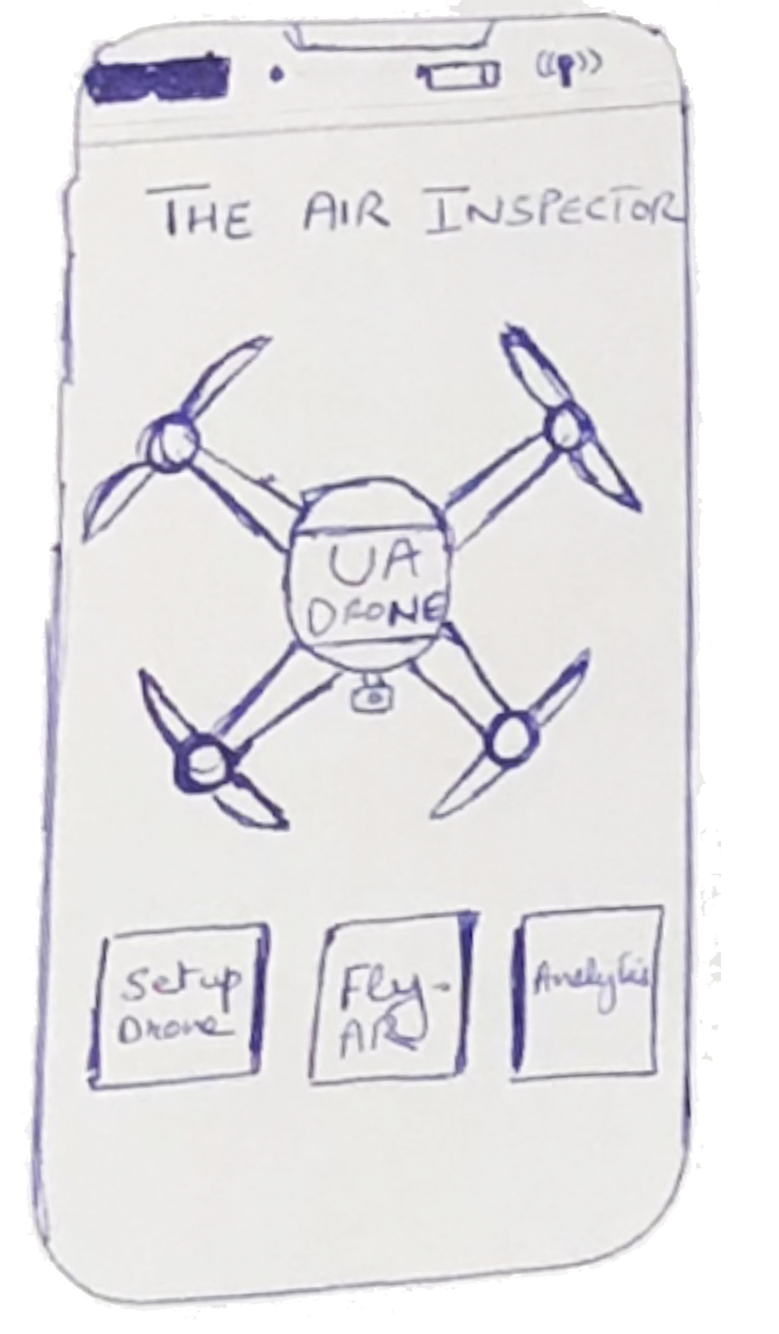 THE AIR INSPECTOR
UA
DRONE
Setup
Drone
Fly-
AR
Analytis